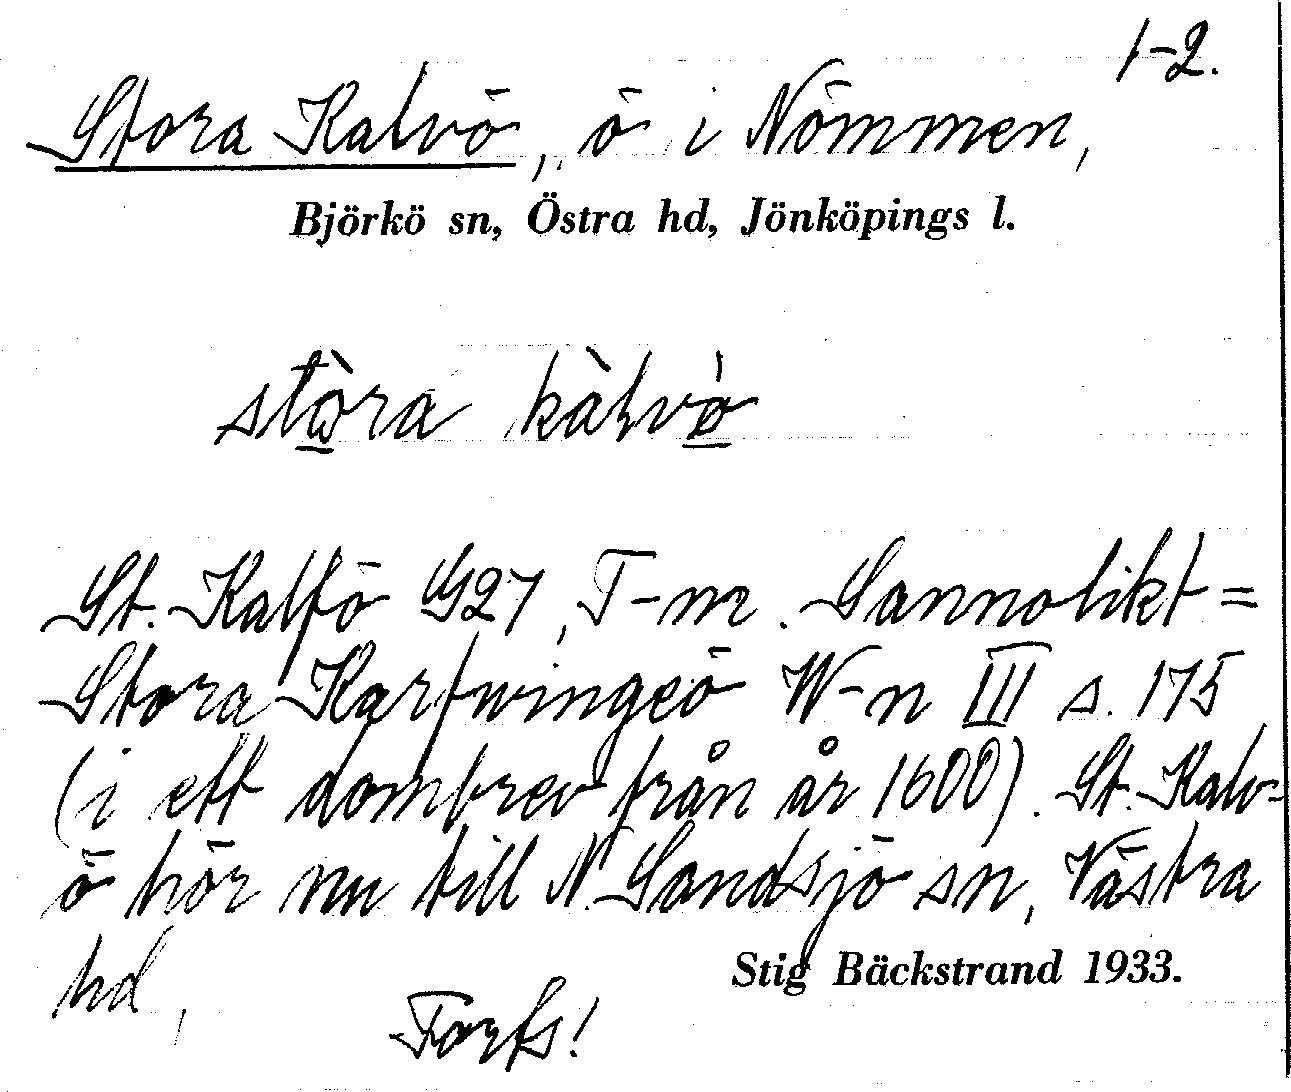 1-2.
Stora Kalvö, ö i Nömmen,
Björkö sn, Östra hd, Jönköpings l.
stòra kàlvǿ
St. Kalfö G27, T-m. Sannolikt =
Stora Karfwingeö W-n III s. 175
(i ett dombrev från år 1600). St. Kalv-
ö hör nu till N. Sandsjö sn, Västra
hd,
Stig Bäckstrand 1933.
Forts!